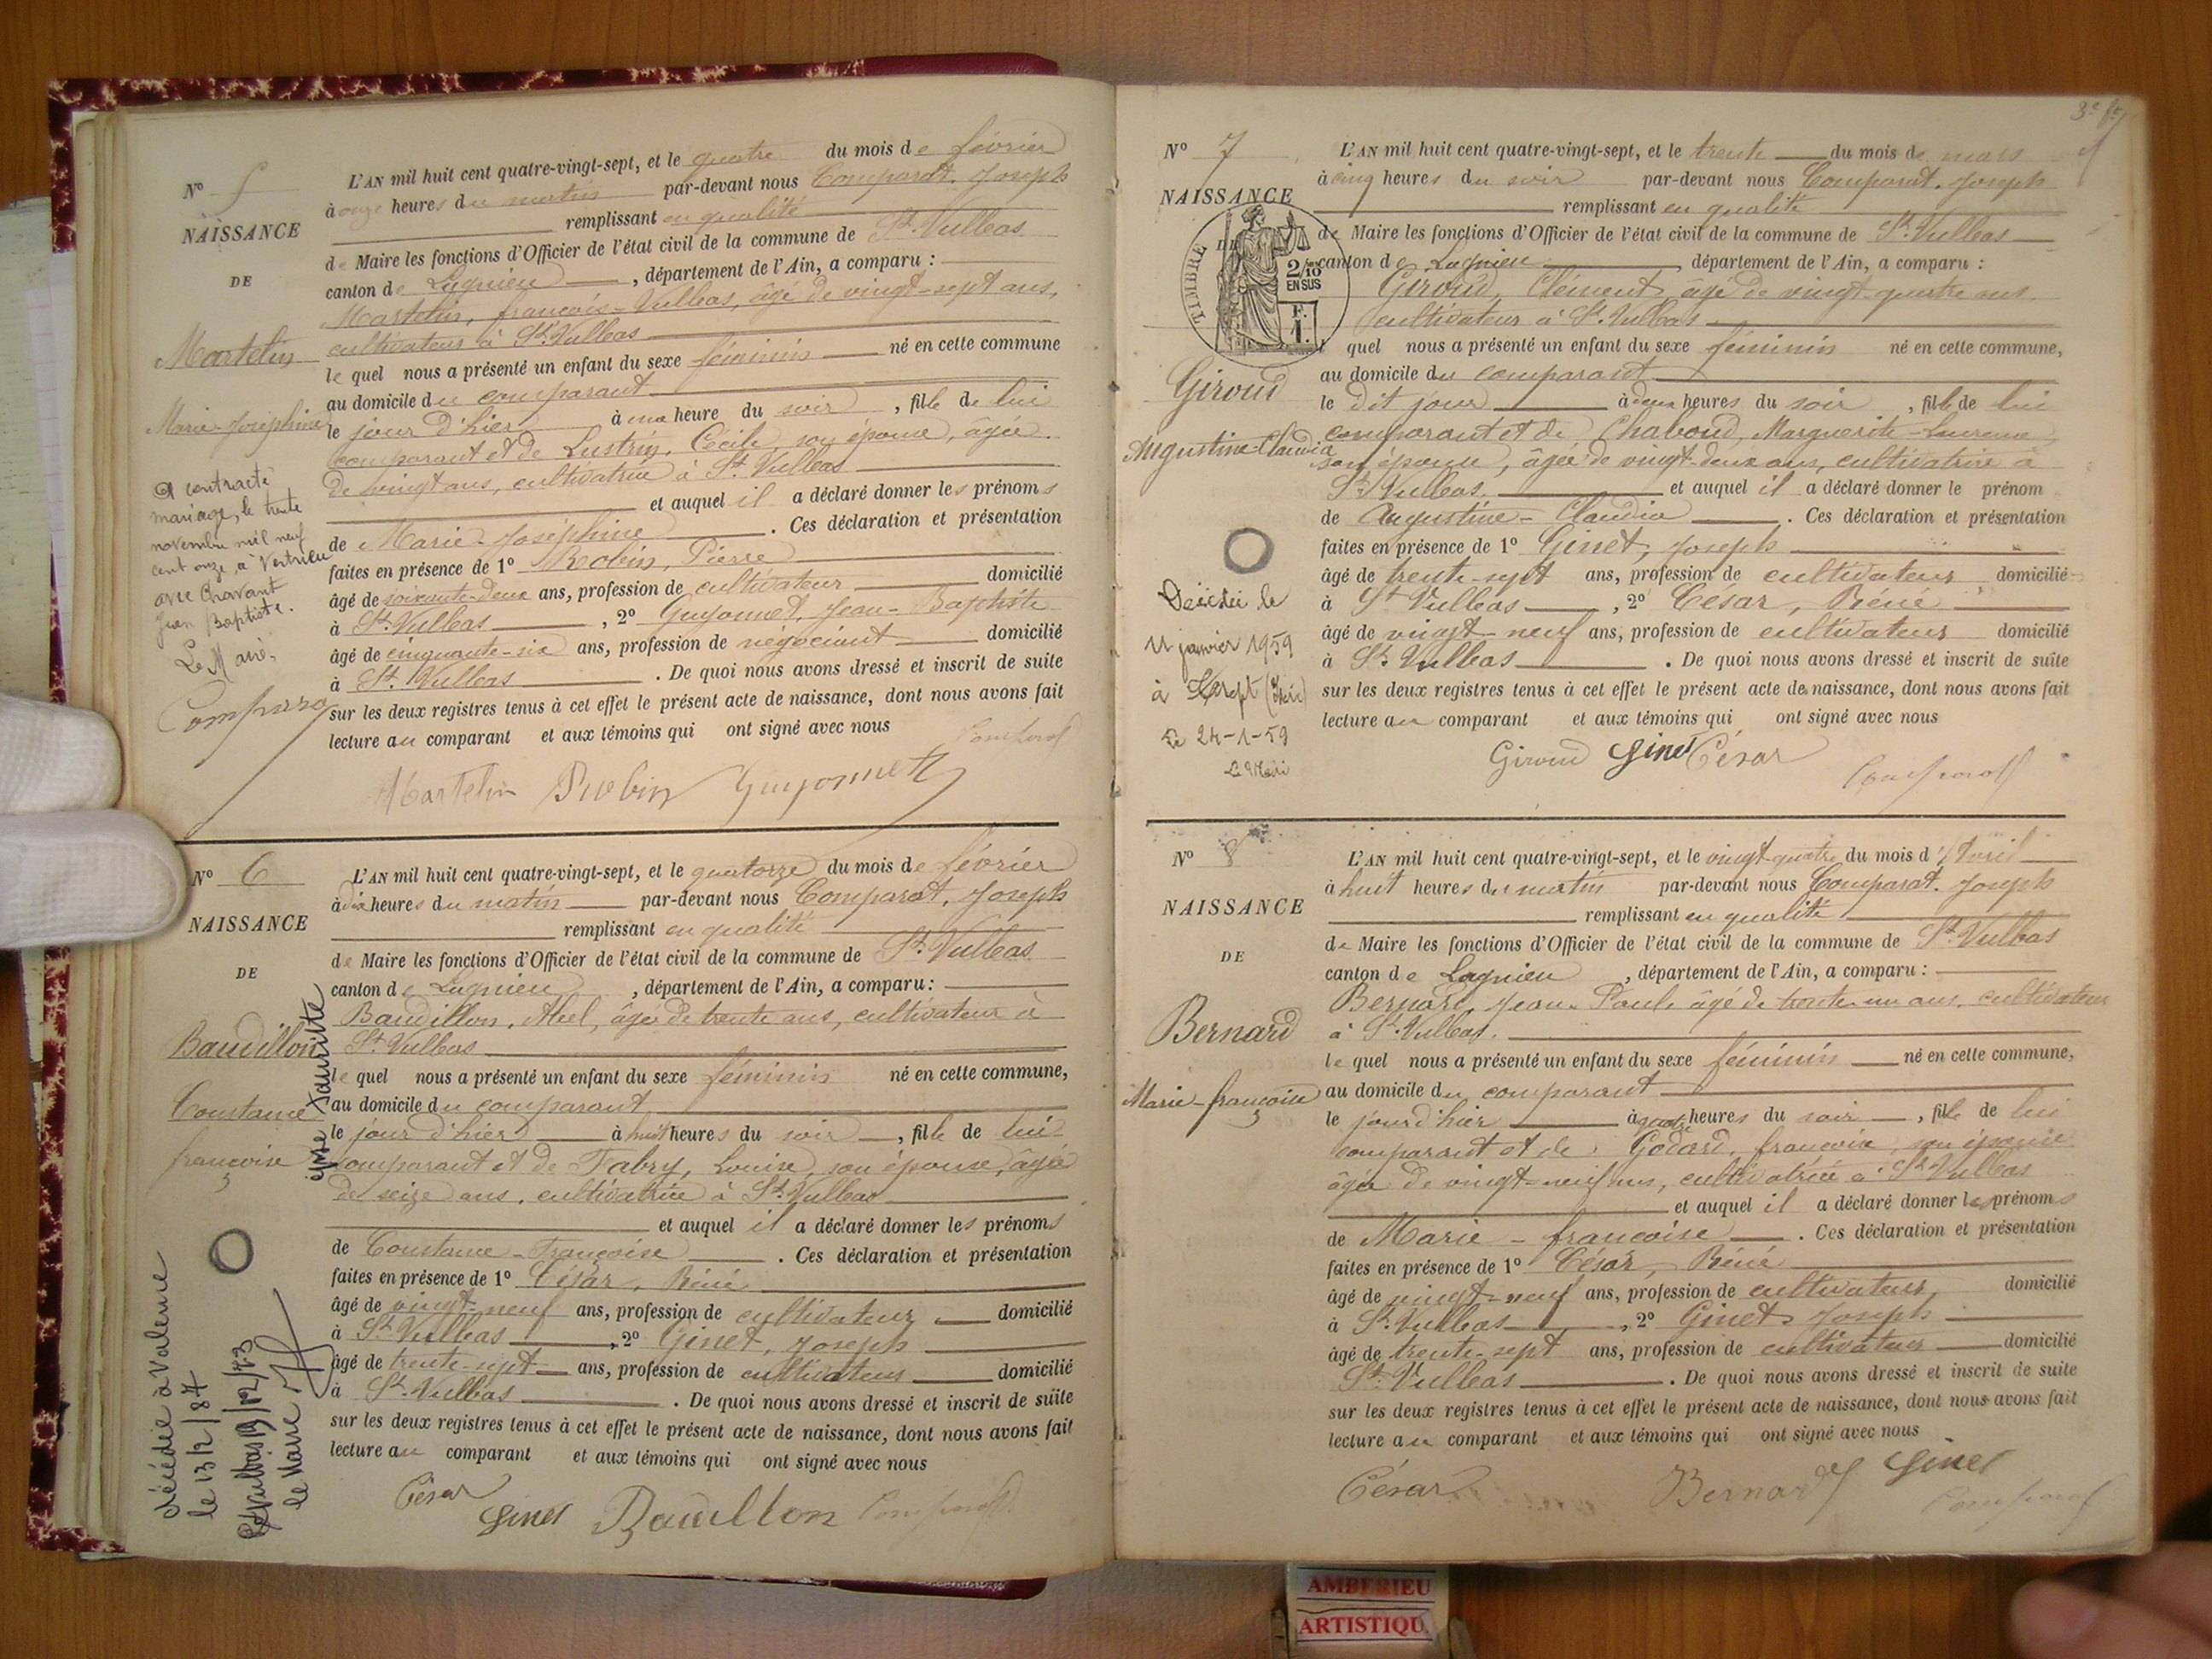 N° 5
NAISSANCE
DE
Martelin
Marie-Joséphine
A contracté
mariage, le trente
novembre mil neuf
cent onze, à Vertrieu
avec Chavant
Jean Baptiste.
Le Maire,
Comparat
L'AN mil huit cent quatre-vingt-sept, et le quatre du mois de février
à onze heures du matin par-devant nous Comparat, Joseph
remplissant en qualité
de Maire les fonctions d'Officier de l'état civil de la commune de St. Vulbas
canton de Lagnieu, département de l'Ain, a comparu :
Martelin, françois-Vulbas, âgé de vingt-sept ans,
cultivateur à St. Vulbas
le quel nous a présenté un enfant du sexe féminin né en cette commune
au domicile du comparant
le jour d'hier à une heure du soir, fille de lui
comparant et de Lustrin, Cécile, son épouse, âgée
de vingt ans, cultivatrice à St. Vulbas
et auquel il a déclaré donner les prénoms
de Marie-Joséphine. Ces déclaration et présentation
faites en présence de 1° Robin, Pierre
âgé de soixante-deux ans, profession de cultivateur domicilié
à St. Vulbas, 2° Guyonnet, Jean-Baptiste
âgé de cinquante-six ans, profession de négociant domicilié
à St. Vulbas. De quoi nous avons dressé et inscrit de suite
sur les deux registres tenus à cet effet le présent acte de naissance, dont nous avons fait
lecture au comparant et aux témoins qui ont signé avec nous
Comparat
Martelin Robin Guyonnet
N° 6
NAISSANCE
DE
Baudillon
Constance
françoise
décédée à Valence
le 13/2/87
St Vulbas
le Maire
L'AN mil huit cent quatre-vingt-sept, et le quatorze du mois de février
à dix heures du matin par-devant nous Comparat, Joseph
remplissant en qualité
de Maire les fonctions d'Officier de l'état civil de la commune de St. Vulbas
canton de Lagnieu, département de l'Ain, a comparu :
Baudillon, Abel, âgé de trente ans, cultivateur à
St. Vulbas
le quel nous a présenté un enfant du sexe féminin né en cette commune,
au domicile du comparant
le jour d'hier à huit heures du soir, fille de lui
comparant et de Fabry, Louise, son épouse, âgée
de seize ans, cultivatrice à St. Vulbas
et auquel il a déclaré donner les prénoms
de Constance-Françoise. Ces déclaration et présentation
faites en présence de 1° César, Réné
âgé de vingt-neuf ans, profession de cultivateur domicilié
à St. Vulbas, 2° Ginet, Joseph
âgé de trente-sept ans, profession de cultivateur domicilié
à St. Vulbas. De quoi nous avons dressé et inscrit de suite
sur les deux registres tenus à cet effet le présent acte de naissance, dont nous avons fait
lecture au comparant et aux témoins qui ont signé avec nous
César Ginet Baudillon Comparat
N° 7
NAISSANCE
DE
TIMBRE
2/10 EN SUS
F. 1.
Giroud
Augustine-Claudia
Décédée le
11 janvier 1959
à (Isère)
Le 24-1-59
Le Maire
3e fo
L'AN mil huit cent quatre-vingt-sept, et le trente du mois de mars
à cinq heures du soir par-devant nous Comparat, Joseph
remplissant en qualité
de Maire les fonctions d'Officier de l'état civil de la commune de St. Vulbas
canton de Lagnieu département de l'Ain, a comparu :
Giroud, Clément, âgé de vingt-quatre ans,
cultivateur à St. Vulbas
quel nous a présenté un enfant du sexe féminin né en cette commune,
au domicile du comparant
le dit jour à deux heures du soir, fille de lui
comparant et de Chaboud, Marguerite-Laurence,
son épouse, âgée de vingt-deux ans, cultivatrice à
St. Vulbas, et auquel il a déclaré donner le prénom
de Augustine-Claudia. Ces déclaration et présentation
faites en présence de 1° Ginet, Joseph
âgé de trente-sept ans, profession de cultivateur domicilié
à St Vulbas, 2° César, Réné
âgé de vingt-neuf ans, profession de cultivateur domicilié
à St. Vulbas. De quoi nous avons dressé et inscrit de suite
sur les deux registres tenus à cet effet le présent acte de naissance, dont nous avons fait
lecture au comparant et aux témoins qui ont signé avec nous
Giroud Ginet César
Comparat
N° 8
NAISSANCE
DE
Bernard
Marie-françoise
L'AN mil huit cent quatre-vingt-sept, et le vingt quatre du mois d'Avril
à huit heures du matin par-devant nous Comparat, Joseph
remplissant en qualité
de Maire les fonctions d'Officier de l'état civil de la commune de St. Vulbas
canton de Lagnieu, département de l'Ain, a comparu :
Bernard, Jean-Paul, âgé de trente-un ans, cultivateur
à St. Vulbas.
le quel nous a présenté un enfant du sexe féminin né en cette commune,
au domicile du comparant
le jour d'hier à quatre heures du soir, fille de lui
comparant et de Godard, françoise, son épouse
âgée de vingt-neuf ans, cultivatrice à St. Vulbas
et auquel il a déclaré donner les prénoms
de Marie-françoise. Ces déclaration et présentation
faites en présence de 1° César, Réné
âgé de vingt-neuf ans, profession de cultivateur, domicilié
à St. Vulbas, 2° Ginet, Joseph
âgé de trente-sept ans, profession de cultivateur domicilié
St. Vulbas. De quoi nous avons dressé et inscrit de suite
sur les deux registres tenus à cet effet le présent acte de naissance, dont nous avons fait
lecture au comparant et aux témoins qui ont signé avec nous
César Bernard Ginet
Comparat
AMBERIEU
ARTISTIQU